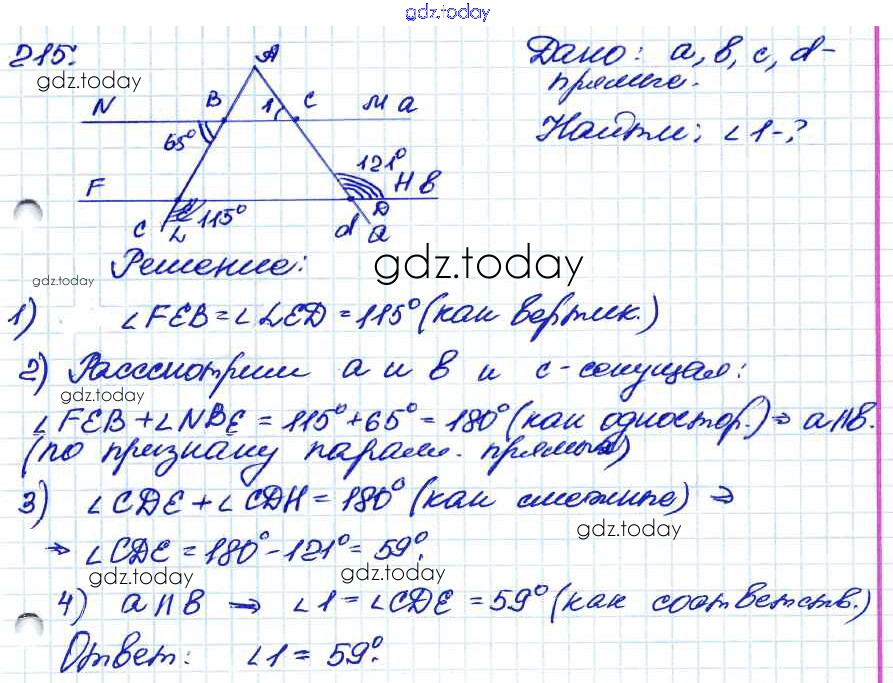 gdz.today
215.
gdz.today
A
N B 1 C M a
65°
121°
F H в
C L 115° d D a
Дано: a, в, c, d-
прямые.
Найти: ∠1-?
Решение:
gdz.today
gdz.today
1) ∠FEB = ∠LED = 115° (как вертик.)
2) Рассмотрим a и в и c-секущая:
gdz.today
∠FEB + ∠NBE = 115° + 65° = 180° (как одностор.) ⇒ a || в.
(по признаку паралл. прямых)
3) ∠CDE + ∠CDH = 180° (как смежные) ⇒
gdz.today
⇒ ∠CDE = 180° - 121° = 59°.
gdz.today gdz.today
4) a || в ⇒ ∠1 = ∠CDE = 59° (как соответств.)
Ответ: ∠1 = 59°.